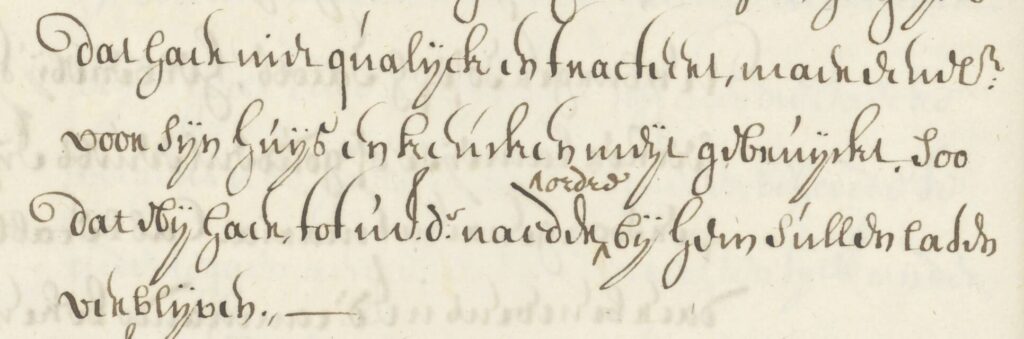 dat haer niet qualyck en tracteert, maer de selve
voor syn huys en keucken meyt gebruyckt. Soo
dat wy haer, tot u E. d.r naerdere ordre by hem sullen laten
verblyven.